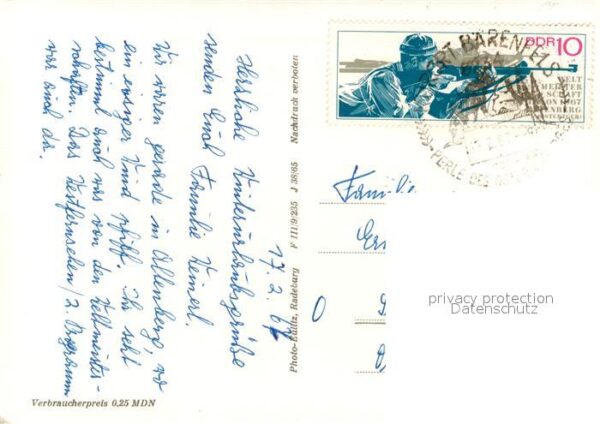 17.2.67
Herrliche Winterurlaubsgrüße
senden Euch
Familie Heinerl.
Wir waren gerade in Altenberg, wo
ein eisiger Wind pfiff. Ihr seht
bestimmt auch was von den Weltmeister-
schaften. Das Westfernsehen/2. Programm
war auch da.
Verbraucherpreis 0,25 MDN
Photo-Edlitz, Radeburg F III/9/235 J 38/65 Nachdruck verboten
DDR 10
WELT
MEISTER
SCHAFT
BIATHLON 1967
ALTENBERG
KURORT BÄRENFELS
PERLE DES
Familie
0
privacy protection
Datenschutz